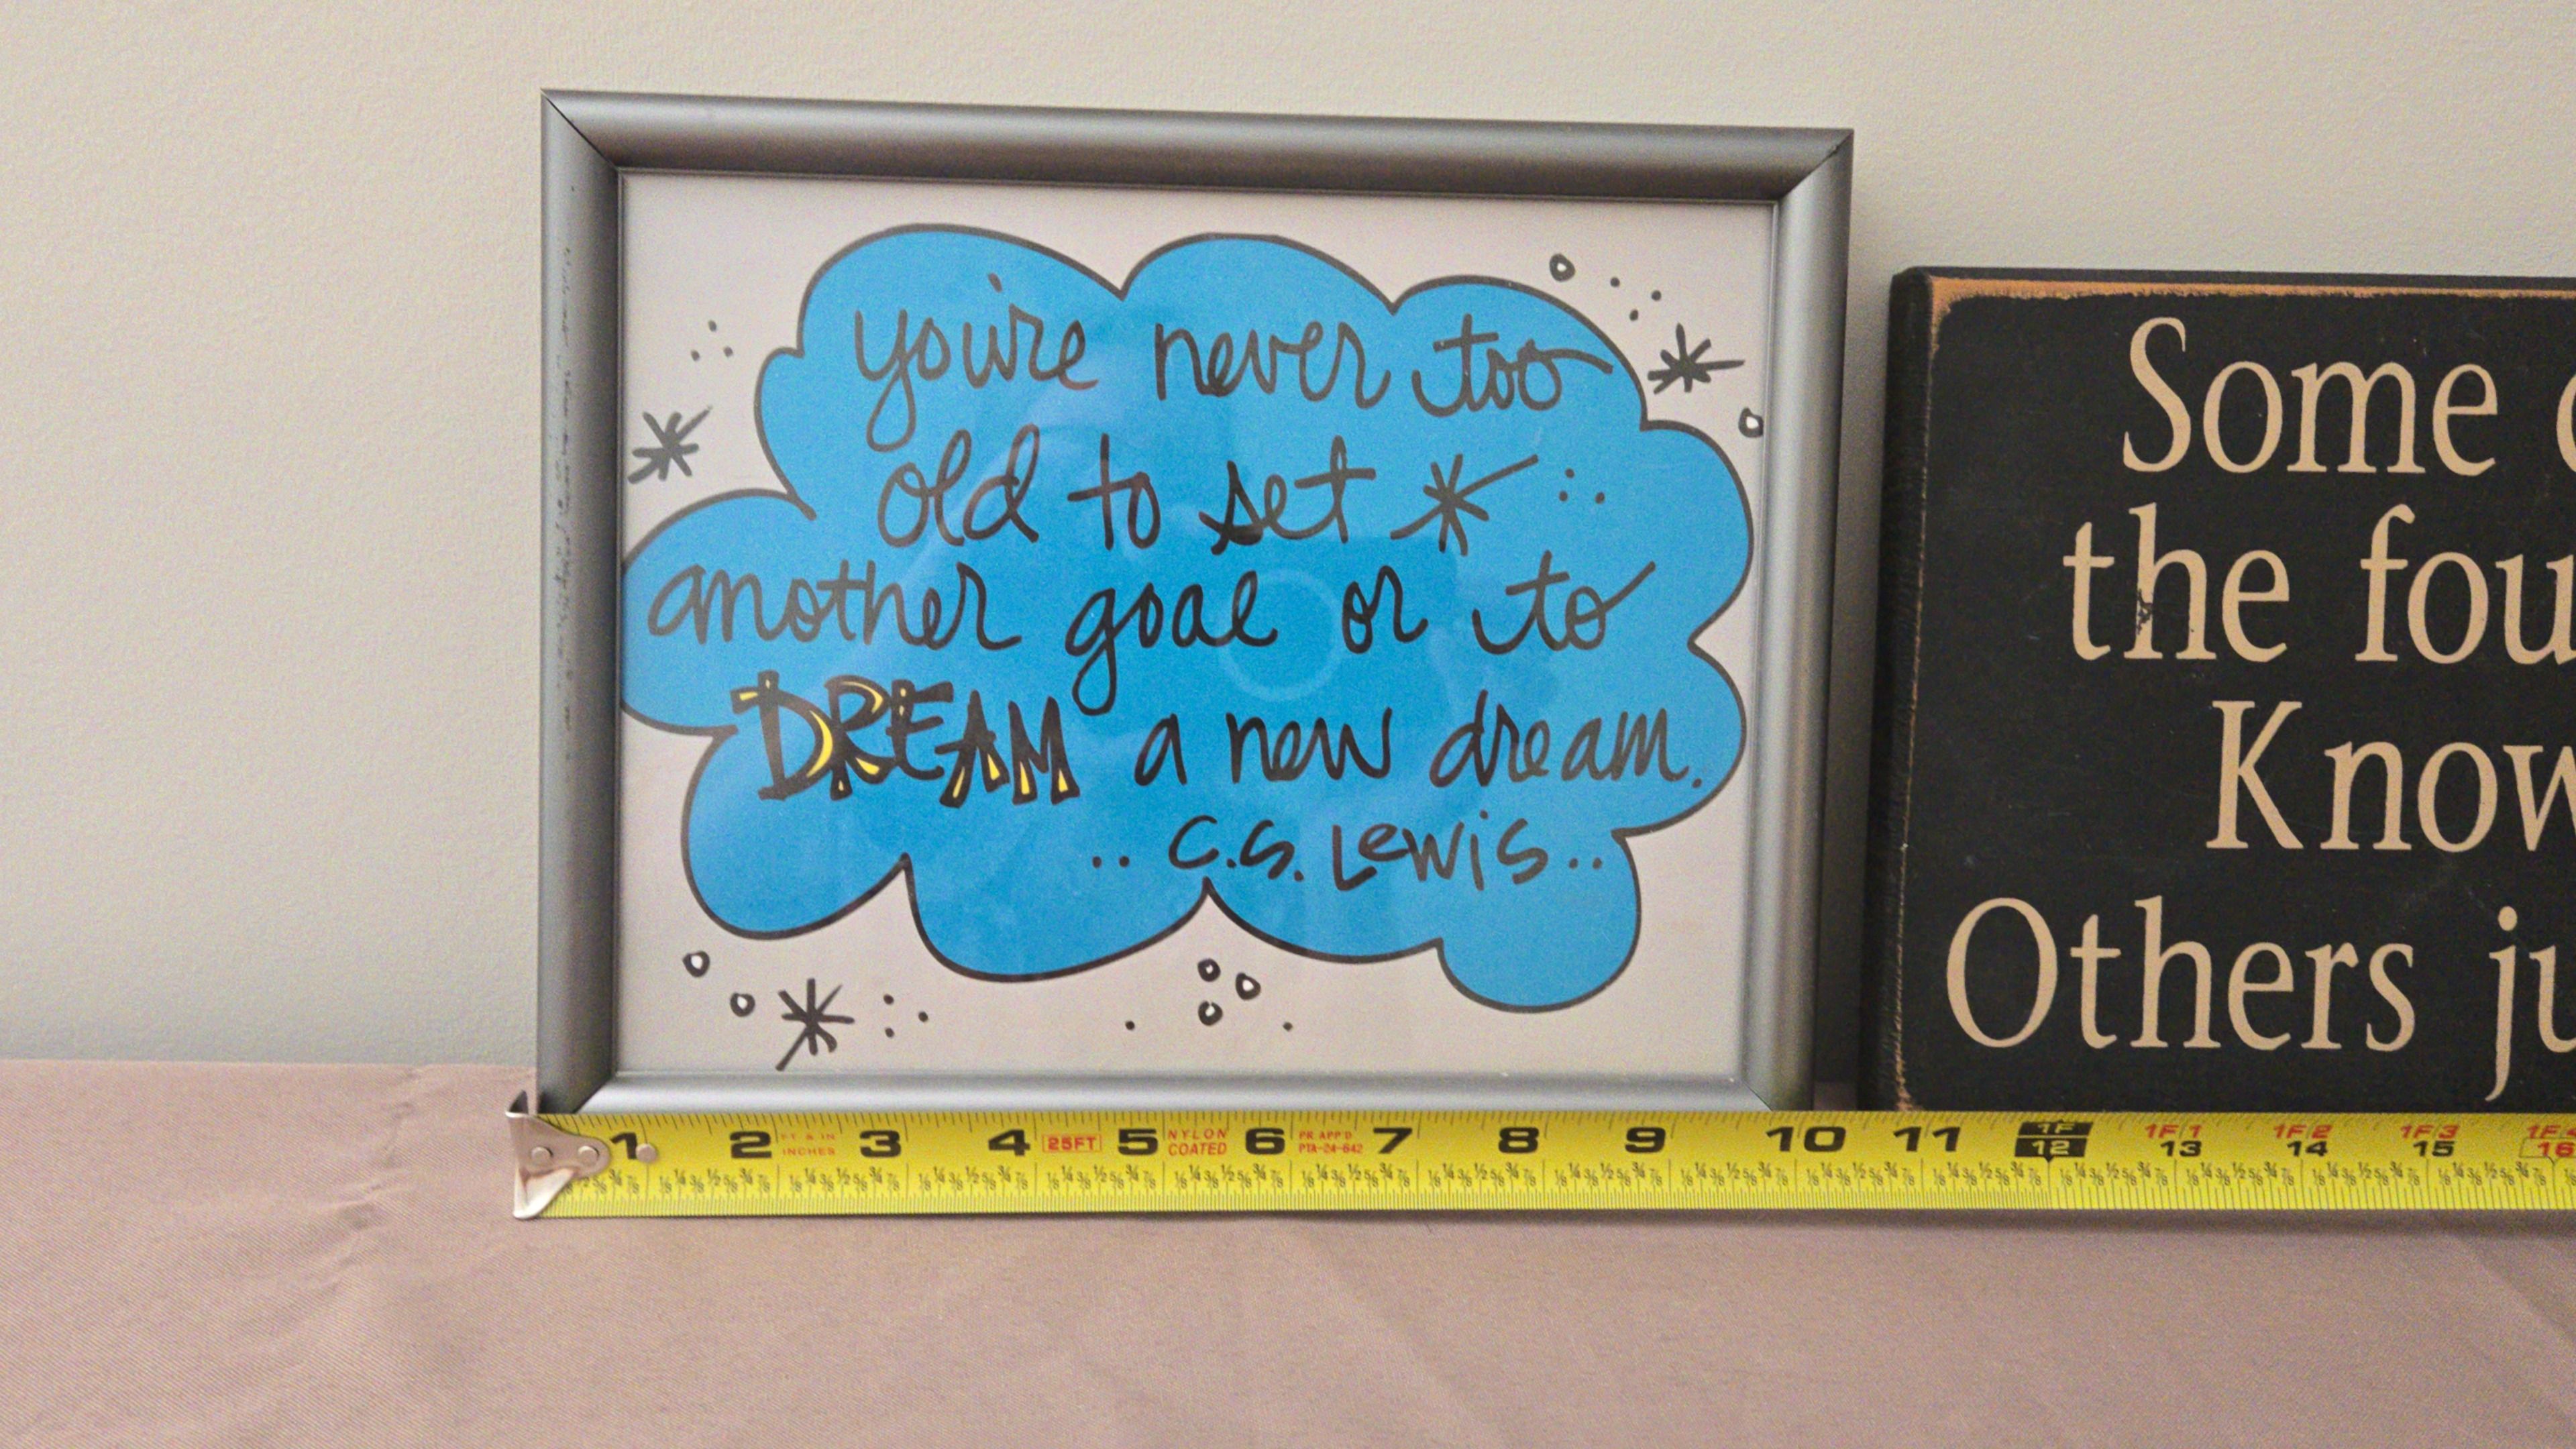 you're never too
old to set
another goal or to
DREAM a new dream.
.. C.S. Lewis..
Some
the fou
Know
Others ju
1 2 FT & IN INCHES 3 4 25FT 5 NYLON COATED 6 PR APP'D PTA-24-642 7 8 9 10 11 1F 12 1F1 13 1F2 14 1F3 15 1F4 16